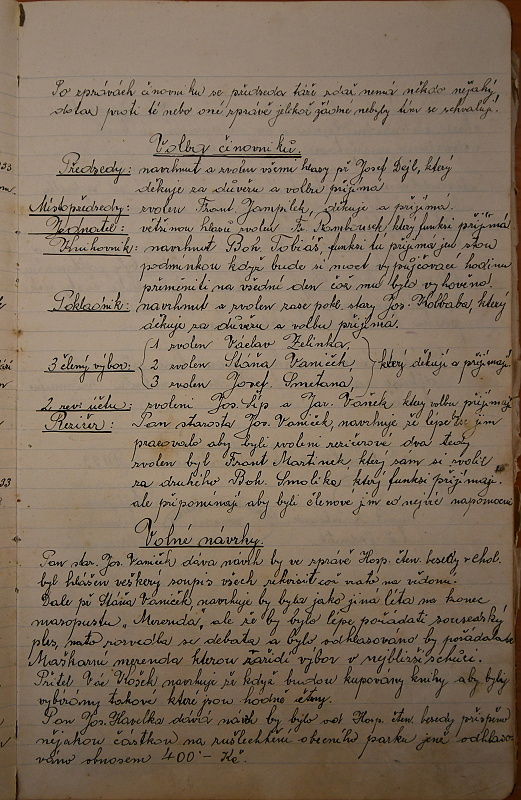 Po zprávách činovníku se předseda táže zdař nemá někdo nějaký
dotaz proti té nebo oné zprávě jelikož žádné nebyly tím se schvalují.
Volba činovníků.
Předsedy: navrhnut a zvolen všemi hlasy př Josef Dejl, který
děkuje za důvěru a volbu přijímá
Místopředsedy: zvolen Frant. Jampílek, děkuje a přijímá.
Jednatel: většinou hlasů zvolen Fr. Kambousek, který funksi přijímá
Knihovník: navrhnut Boh. Tobiáš, funksi tu přijímá jen stou
podmínkou když bude si moct vypůjčovací hodinu
přeměniti na všední den což mu bylo vyhověno.
Pokladník: navrhnut a zvolen zase pokl. starý Jos. Kolbaba, který
děkuje za důvěru a volbu přijímá.
1 zvolen Václav Zelinka,
3 člený výbor: 2 zvolen Stáňa Vaníček, který děkují a přijímají
3 zvolen Josef Smetana,
2 rev. účtu: zvoleni Jos. Šíp a Jar. Vaněk, který volbu přijímají
Režizér: Pan starosta Jos. Vaníček, navrhuje že lépe by jim
pracovalo aby byli zvoleni režizérové dva tedy
zvolen byl Frant Martínek, který sám si zvolil
za druhého Boh. Smolíka který funksi přijímají.
ale připomínají aby byli členové jim co nejvíc nápomocni
Volné návrhy.
Pan star. Jos. Vaníček dává návrh by ve správě Hosp. čten. besedy v Chol.
byl hlášen veškerý soupis všech rekvisit což vzato na vědomí.
Dále př Stáňa Vaníček, navrhuje by byla jako jiná léta na konec
masopustu „Merenda", ale že by bylo lépe pořádati sousedský
ples, načo rozvedla se debata a bylo odhlasováno by pořádala
Maškarní merenda kterou zařídí výbor v nejbližší schůzi.
Přítel Vác Vlasek navrhuje že když budou kupovány knihy, aby byly
vybírány takové které jsou hodně čteny.
Pan Jos. Havelka dává návrh by bylo od Hosp. čten. besedy přispěno
nějakou částkou na zušlechtění obecního parku jenž odhlaso-
váno obnosem 400·- Kč.